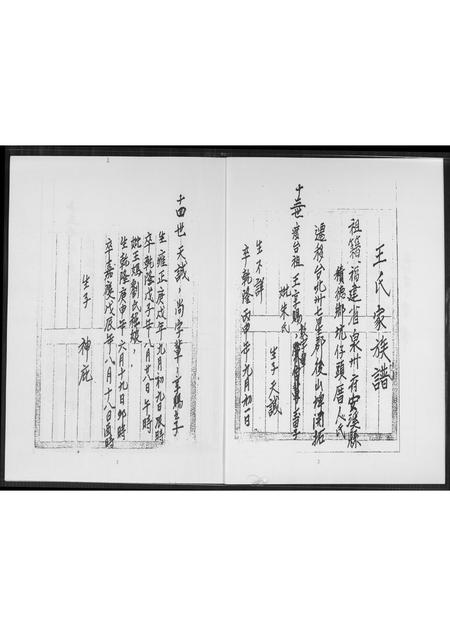 王氏家族譜
祖籍:福建省泉州府安溪縣
積德鄉坑仔頭厝人氏
遷移台北州七星郡後山坤開拓
十三世渡台祖 王宜賜
妣朱氏 生子天誠
生不詳
卒乾隆丙申年九月初一日
十四世天誠,尚字輩,宜賜長子
生雍正庚戌年九月初九日辰時
卒乾隆戊子年八月廿九日午時
妣王媽劉氏
生乾隆庚申年六月十九日卯時
卒嘉慶戊辰年八月十八日酉時
生子 神庇